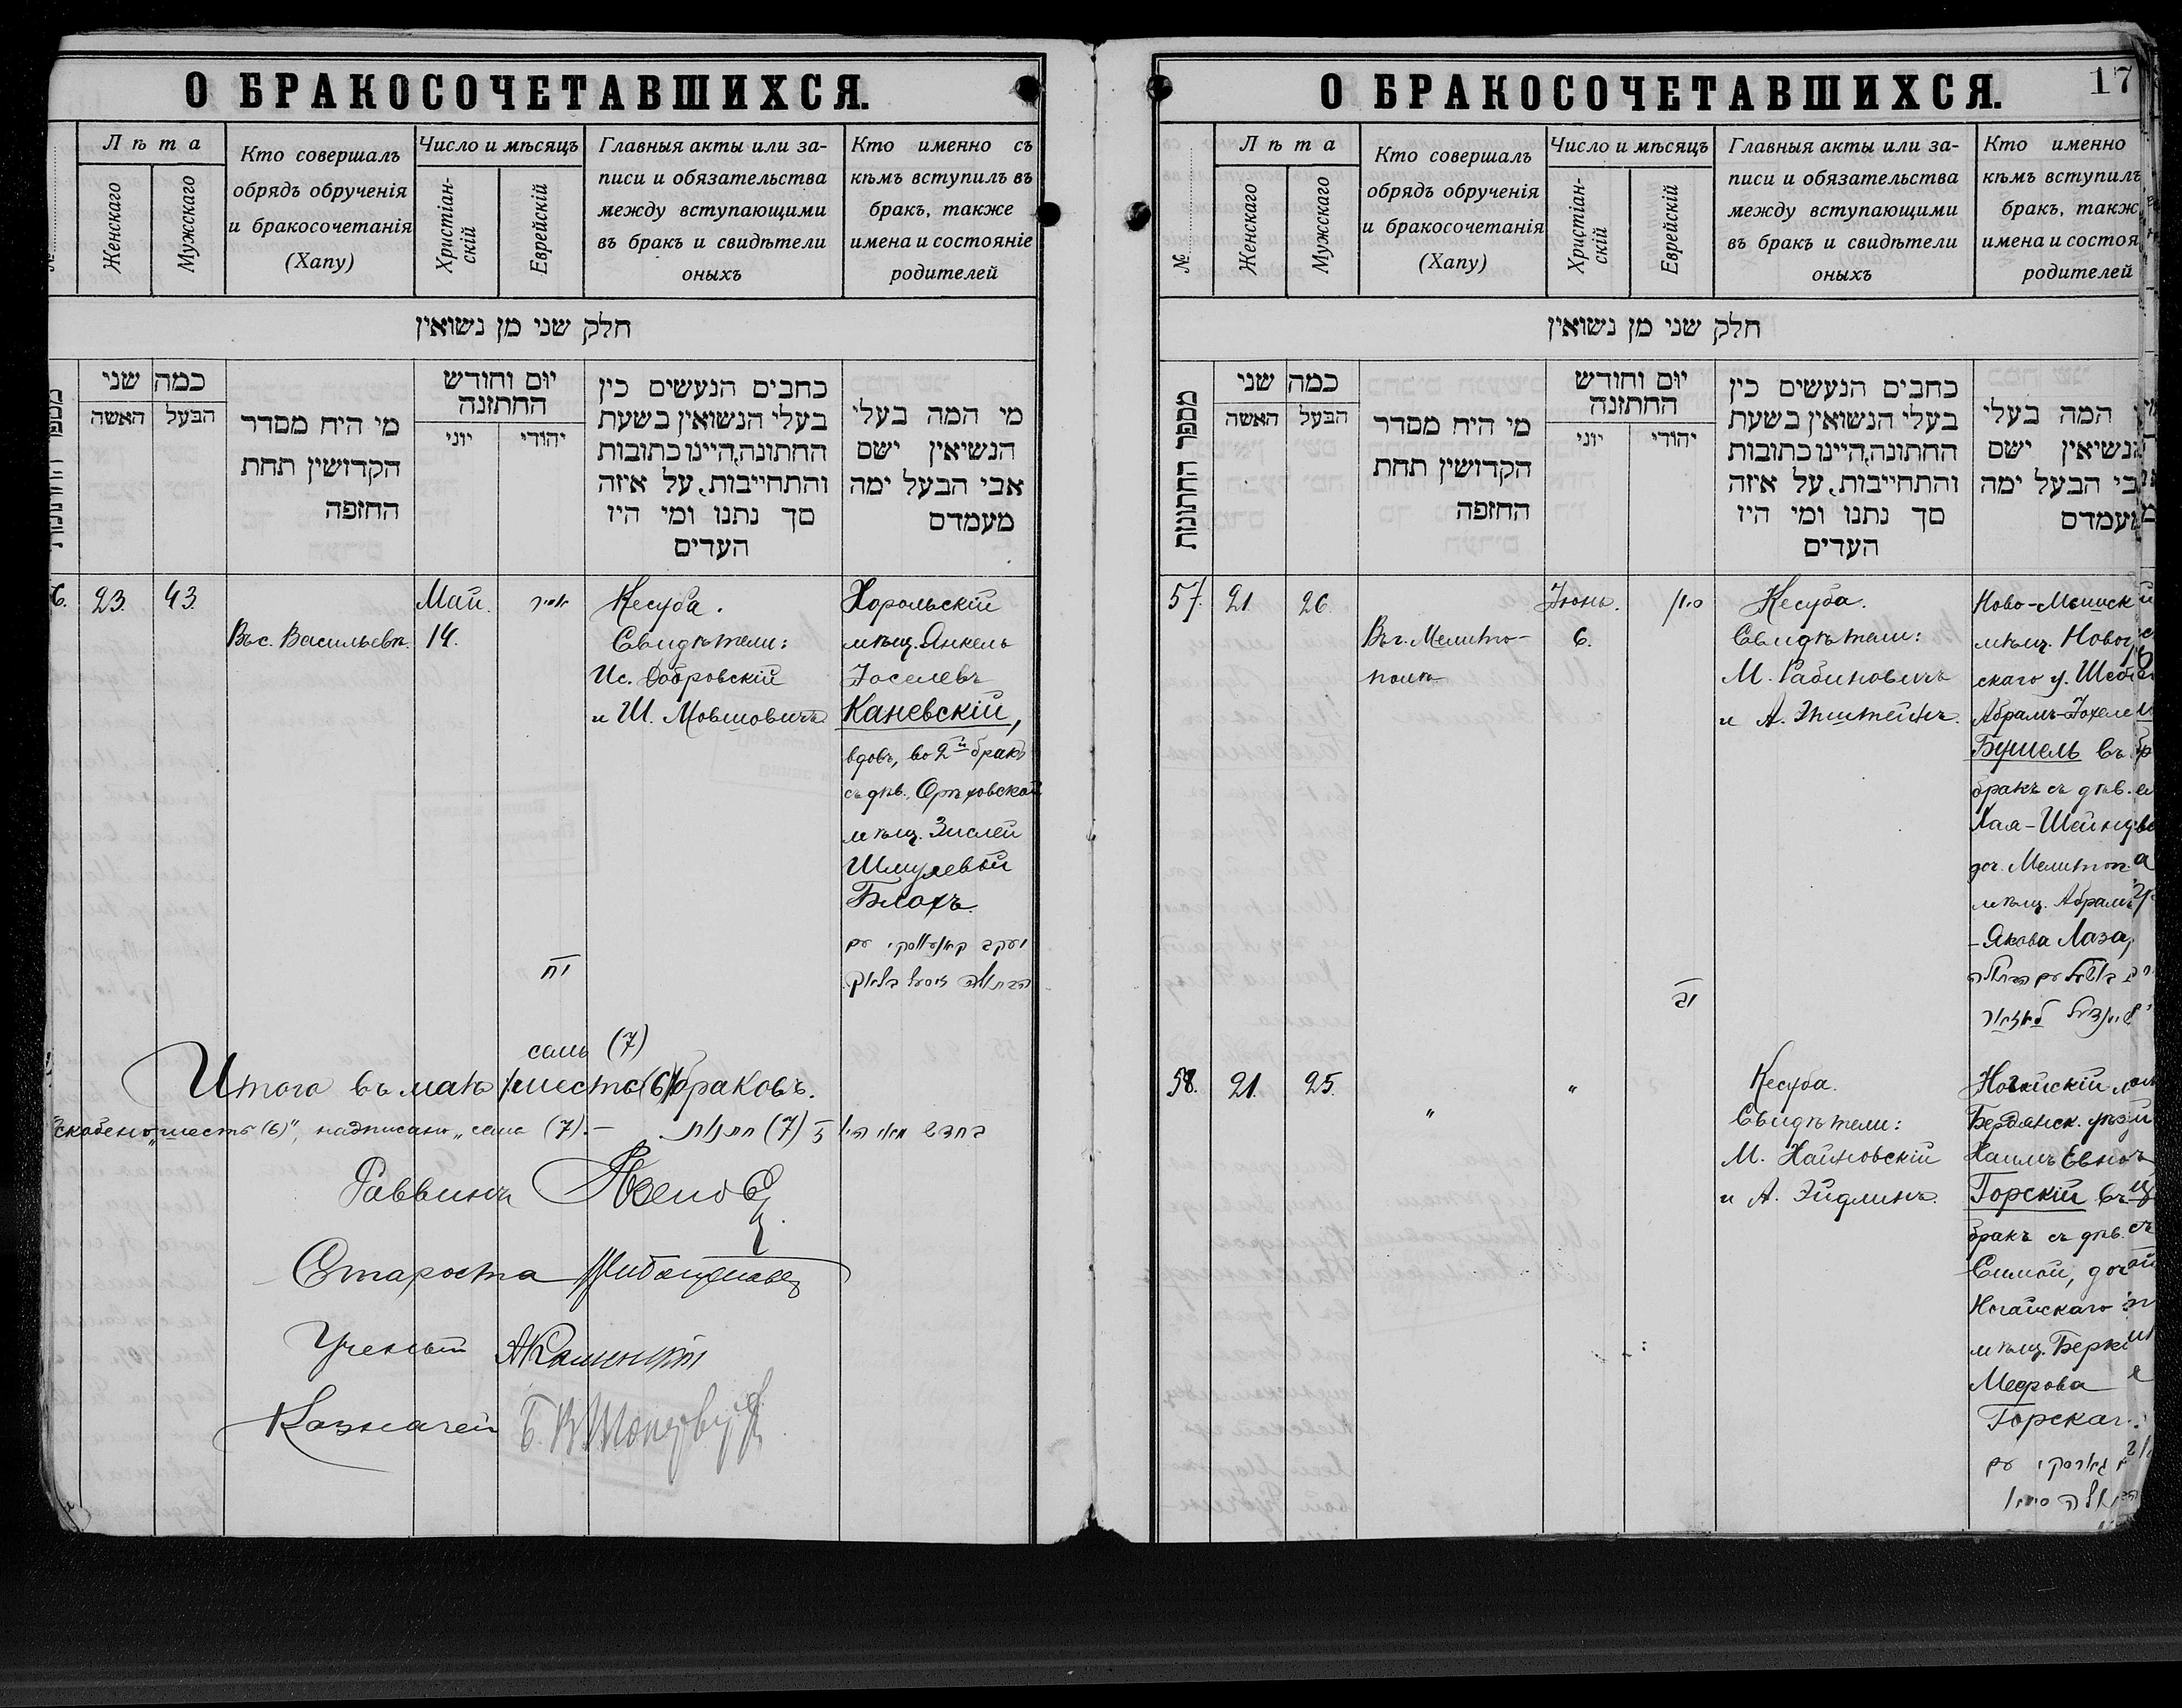 О БРАКОСОЧЕТАВШИХСЯ.
Лѣта
Женскаго
Мужскаго
Кто совершалъ
обрядъ обрученія
и бракосочетанія
(Хапу)
Число и мѣсяцъ
Христіан-
скій
Еврейскій
Главныя акты или за-
писи и обязательства
между вступающими
въ бракъ и свидѣтели
оныхъ
Кто именно съ
кѣмъ вступилъ въ
бракъ, также
имена и состояніе
родителей
חלק שני מן נשואין
כמה שני
האשה
הבעל
מי היח מסדר
הקדושין תחת
החופה
יום וחודש
החתונה
יוני
יהודי
כחבים הנעשים כין
בעלי הנשואין בשעת
החתונה,היינו כתובות
והתחייבות, על איזה
סך נתנו ומי היו
העדים
מי המה בעלי
הנשיאין ישם
אבי הבעל ימה
מעמדם
6. 23. 43.
Въ с. Васильевк.
Май.
14.
אייר
יח
Кесуба.
Свидѣтели:
Ис. Добровскій
и Ш. Мовшовичъ
Хорольскій
мѣщ. Янкель
Іоселевъ
Каневскій,
вдовъ, во 2й бракъ
съ дѣв. Орѣховской
мѣщ. Зислей
Шмулевой
Блохъ.
семь (7)
Итого въ маѣ /шесть (6)/ браковъ.
скоблено „шесть (6)", надписано „семь (7).—
Раввинъ
Староста
Ученый
Казначей
О БРАКОСОЧЕТАВШИХСЯ.
17
№
Лѣта
Женскаго
Мужскаго
Кто совершалъ
обрядъ обрученія
и бракосочетанія
(Хапу)
Число и мѣсяцъ
Христіан-
скій
Еврейскій
Главныя акты или за-
писи и обязательства
между вступающими
въ бракъ и свидѣтели
оныхъ
Кто именно
кѣмъ вступилъ
бракъ, такж
имена и состоя
родителей
חלק שני מן נשואין
מספר החתונות
כמה שני
האשה
הבעל
מי היח מסדר
הקדושין תחת
החופה
יום וחודש
החתונה
יוני
יהודי
כחבים הנעשים כין
בעלי הנשואין בשעת
החתונה,היינו כתובות
והתחייבות, על איזה
סך נתנו ומי היו
העדים
המה בעלי
הנשיאין ישם
אבי הבעל ימה
מעמדם
57. 21 26.
Въ г. Мелито-
полѣ
Іюнь.
6.
סיון
Кесуба.
Свидѣтели:
М. Рабиновичъ
и А. Эпштейнъ.
мѣщ.
скаго у.
Бушель въ
бракъ съ дѣв.
Хая-Шейнд
доч. Мелитоп.
мѣщ. Абрамъ
-Якова
58. 21. 25.
„
„
Кесуба.
Свидѣтели:
М. Хайновскій
и А. Эйдлинъ.
Ногайскій
Бердянск.
Хаимъ
Горскій въ
бракъ съ дѣв.
Симой,
Ногайскаго
мѣщ.
Меерова
Горскаг